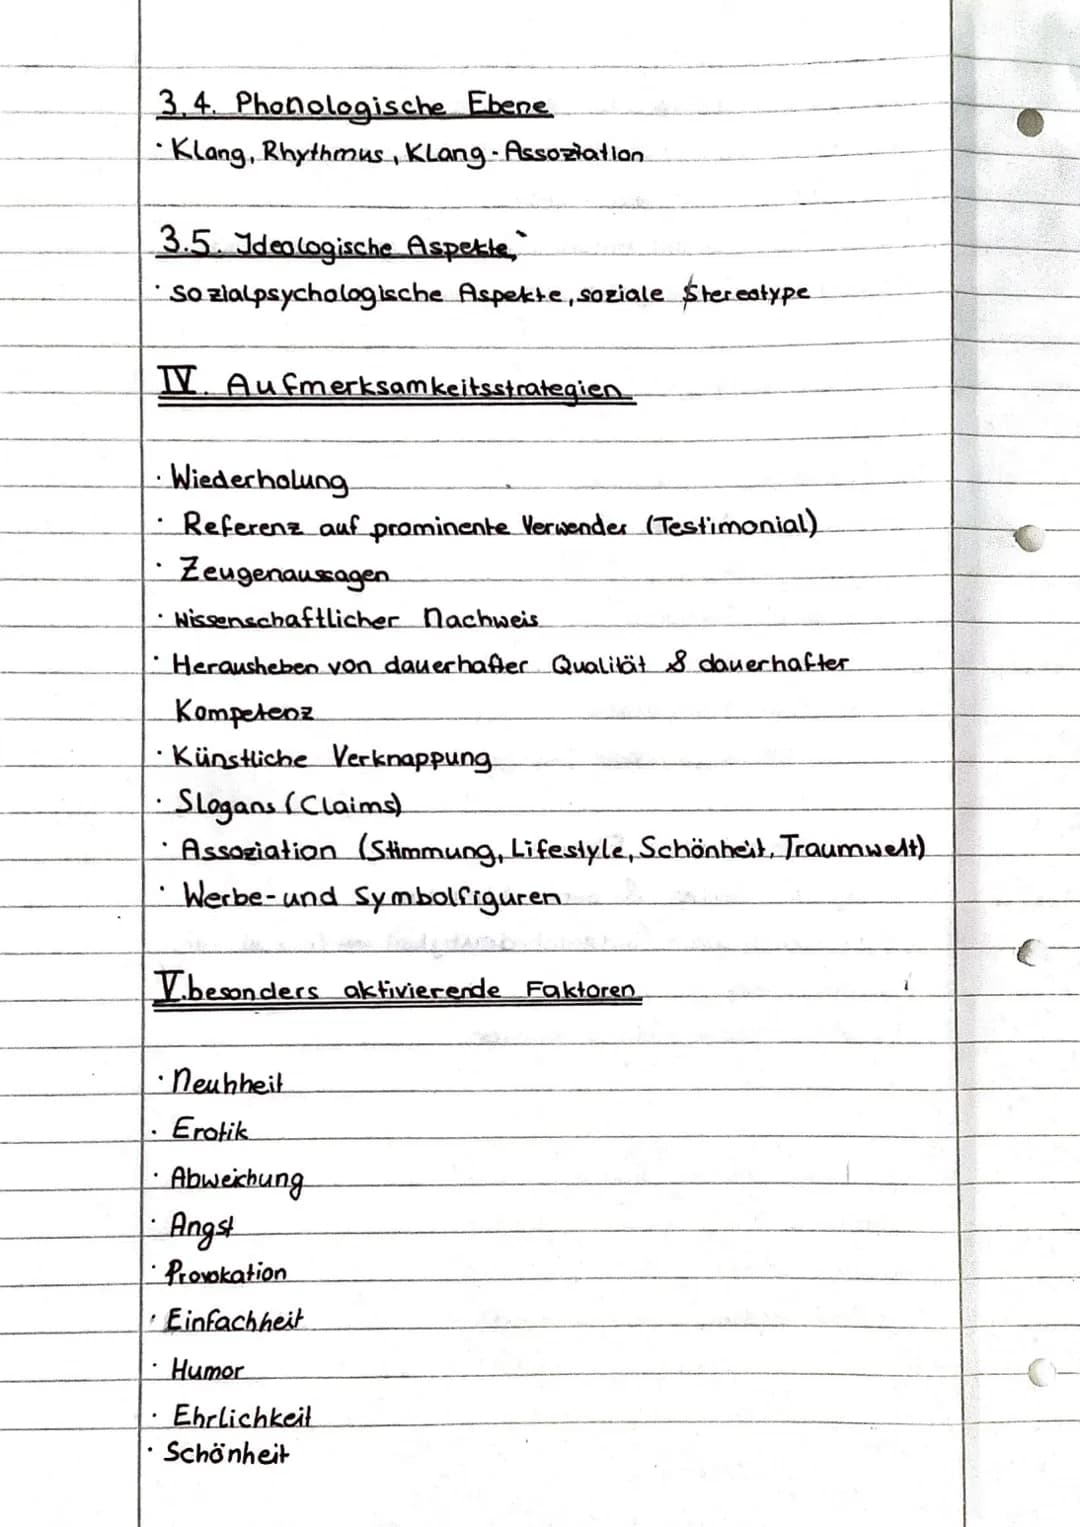 3.4. Phonologische Ebene
· Klang, Rhythmus, Klang-Assoziation
3.5. Ideologische Aspekte
· sozialpsychologische Aspekte, soziale Stereotype
IV. Aufmerksamkeitsstrategien
· Wiederholung
· Referenz auf prominente Verwender (Testimonial)
· Zeugenaussagen
· wissenschaftlicher Nachweis
· Herausheben von dauerhafter Qualität & dauerhafter
Kompetenz
· Künstliche Verknappung
· Slogans (Claims)
· Assoziation (Stimmung, Lifestyle, Schönheit, Traumwelt)
· Werbe- und Symbolfiguren
V. besonders aktivierende Faktoren
· Neuhheit
· Erotik
· Abweichung
· Angst
· Provokation
· Einfachheit
· Humor
· Ehrlichkeit
· Schönheit